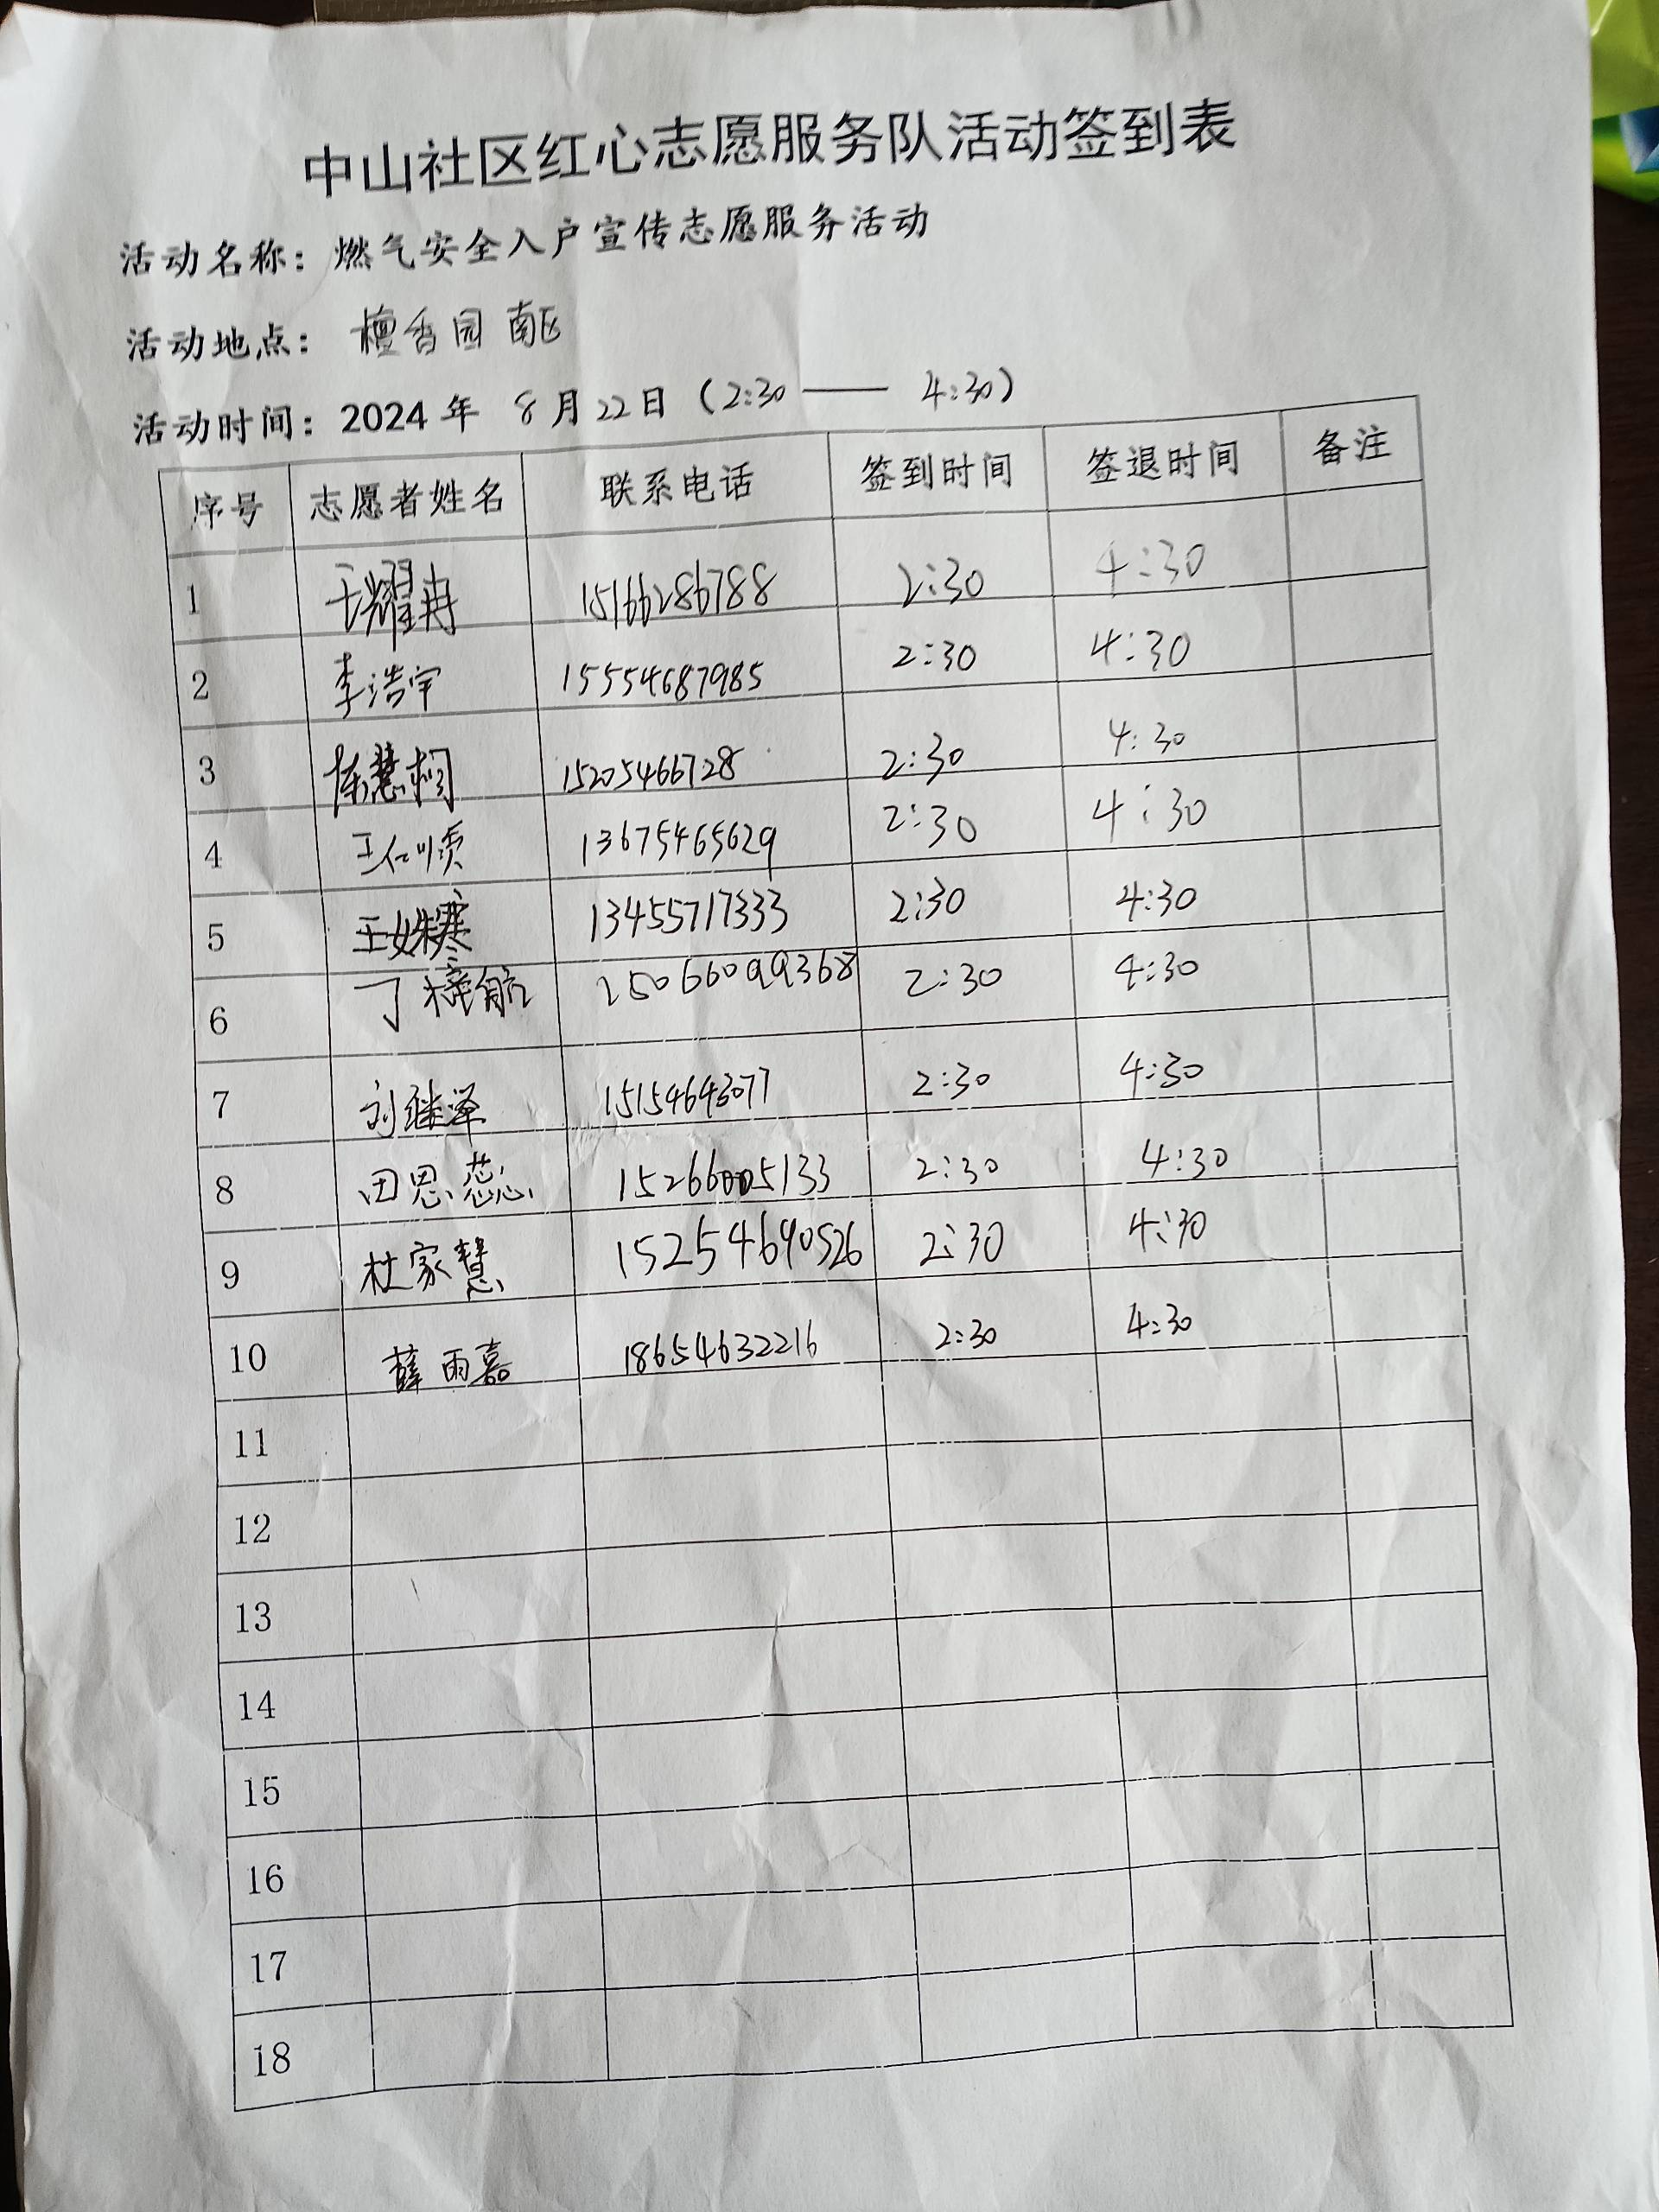 中山社区红心志愿服务队活动签到表
活动名称：燃气安全入户宣传志愿服务活动
活动地点： 檀香园 南区
活动时间：2024 年 8 月 22 日（2:30 —— 4:30）
序号 志愿者姓名 联系电话 签到时间 签退时间 备注
1 王耀冉 15166286788 2:30 4:30
2 李浩宇 15554687985 2:30 4:30
3 陈慧桐 15205466728 2:30 4:30
4 王仁顺 13675465629 2:30 4:30
5 王姝寒 13455717333 2:30 4:30
6 丁 航 15066099368 2:30 4:30
7 刘继泽 15154643077 2:30 4:30
8 田恩蕊 15266005133 2:30 4:30
9 杜家慧 15254690526 2:30 4:30
10 薛雨嘉 18654632216 2:30 4:30
11
12
13
14
15
16
17
18